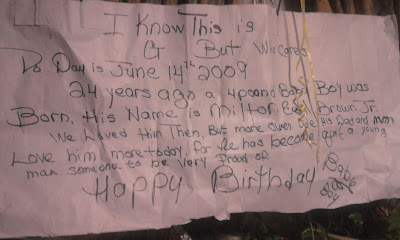 I Know This is
But Who cares
To Day is June 14th 2009
24 years ago a 4pound Baby Boy was
Born, His Name is Milton Brown Jr.
We Loved Him Then, But more over we his Dad and mom
Love him more today, for he has become quit a young
man someone to be very Proud of
Happy Birthday